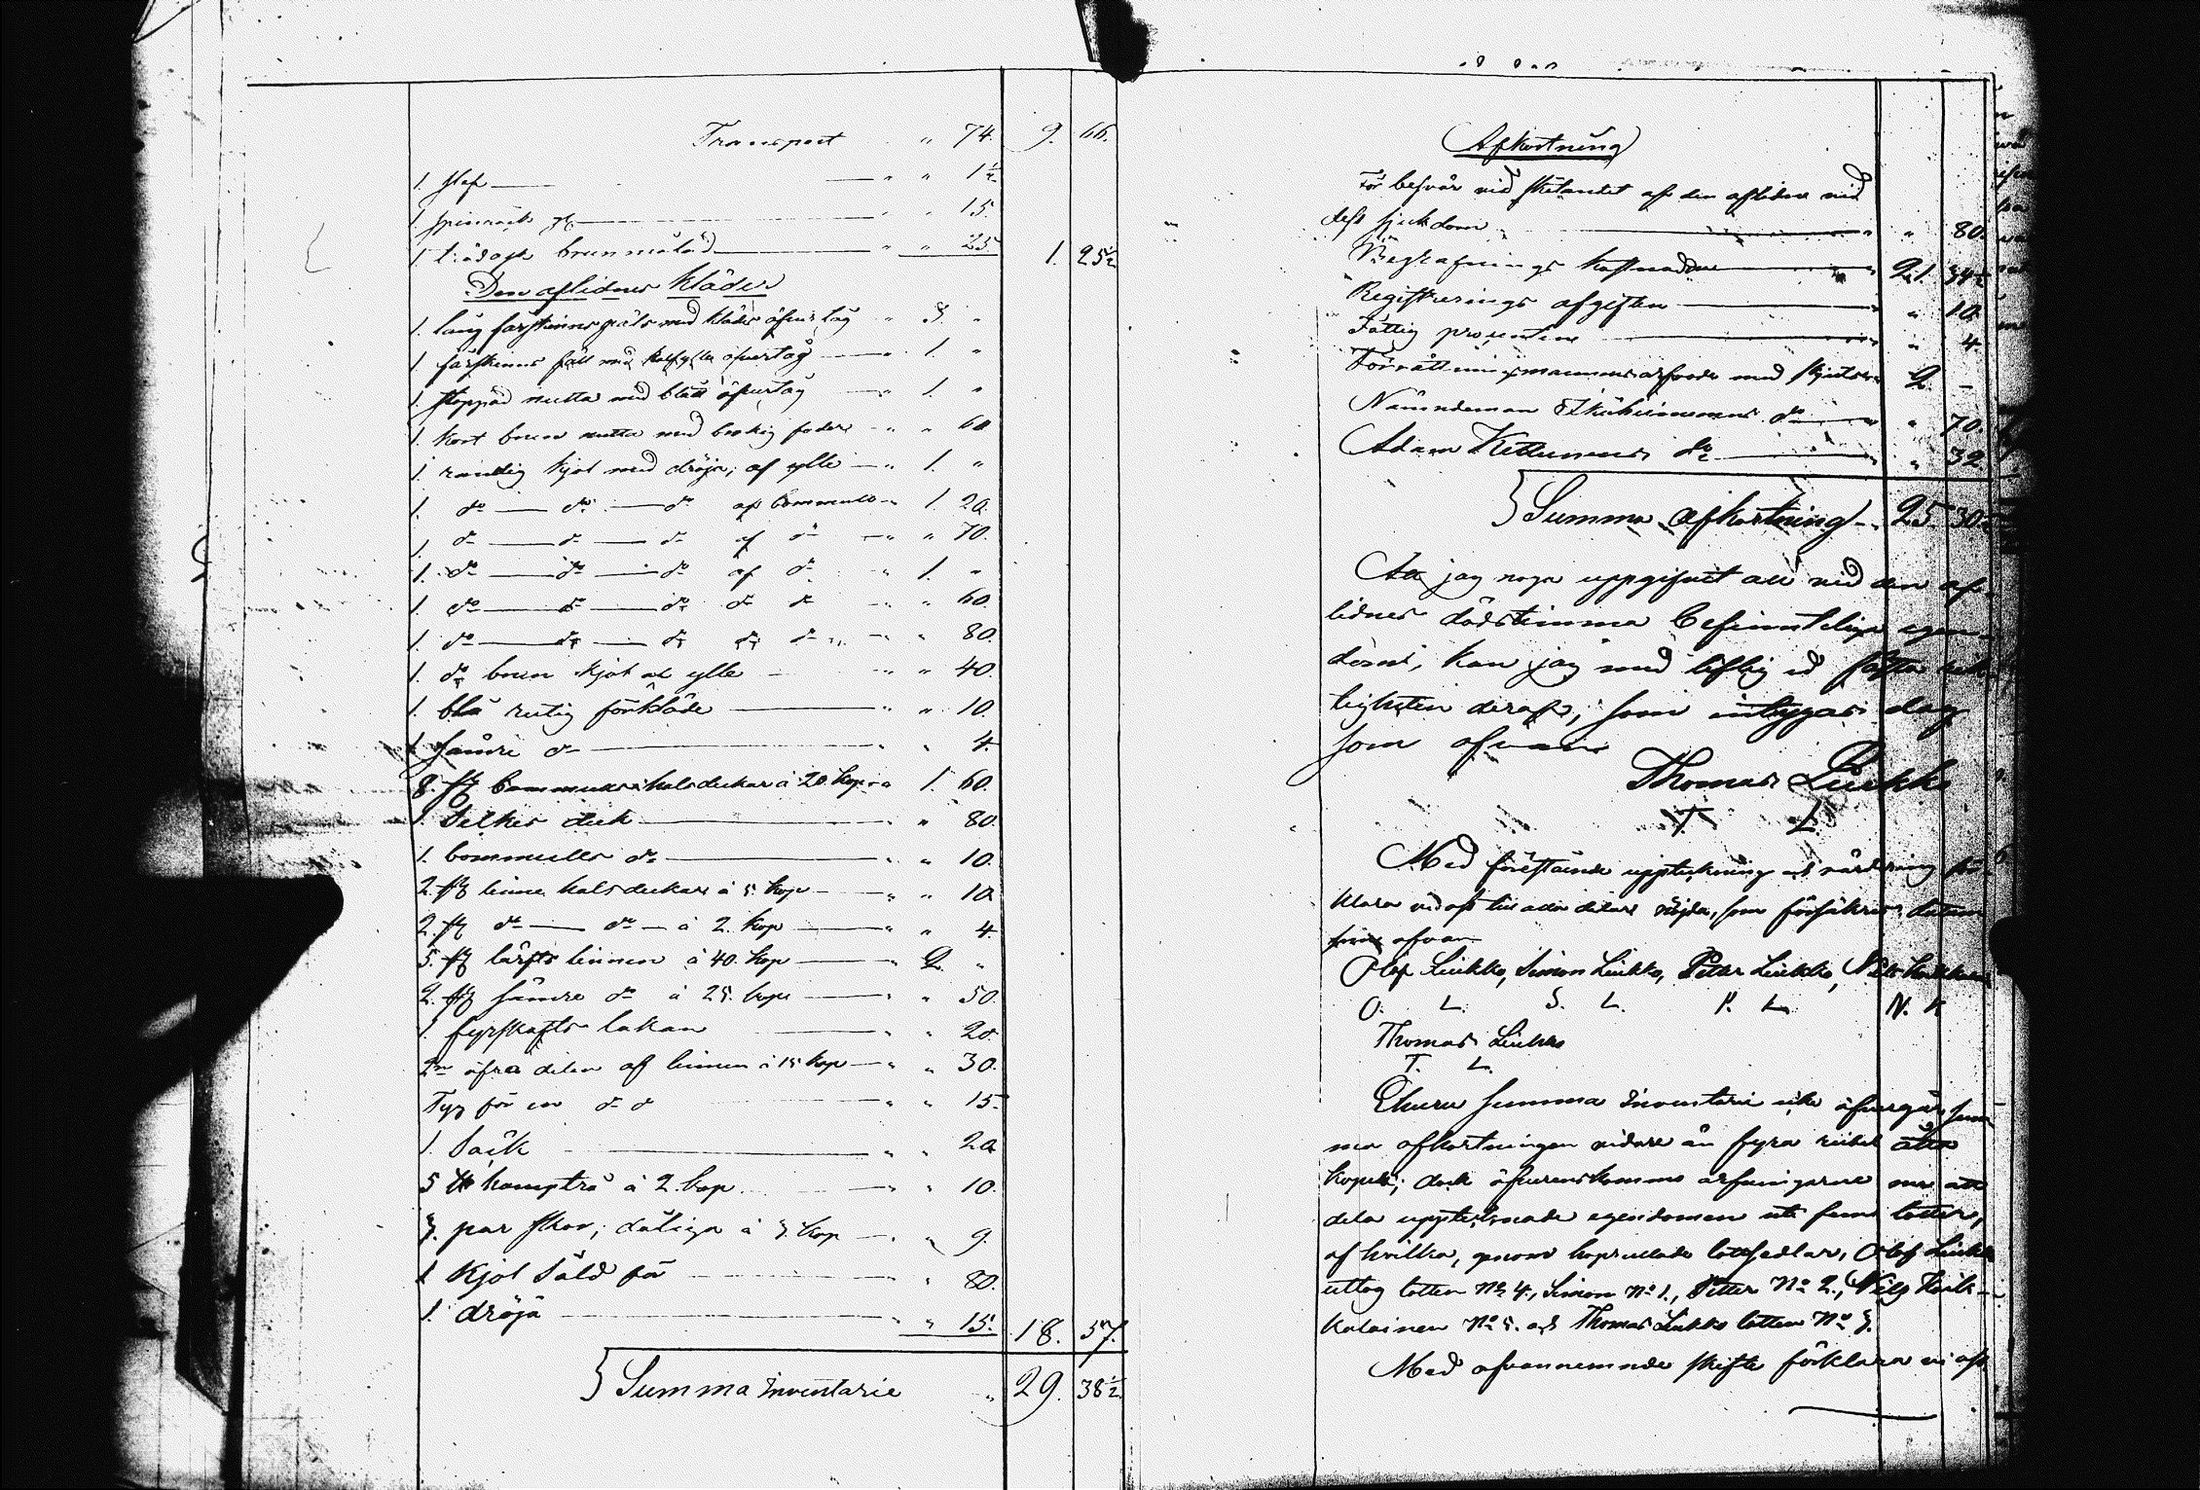 Transport " 74. 9. 66.
1. slef " " 1½
1. spinrock " " 15.
1. trädask brunmålad " " 25 1. 25½
Den aflidnes kläder
1. lång fårskinns päls med kläde öfvertag " 3. "
1 fårskinns fäll med öfvertag " 1. "
1. stoppad mutta med blått öfvertag " 1. "
1. kort brun mutta med brokig foder " " 60
1 randig kjol med dröja, af ylle " 1. "
1. do do do af bommull " 1. 20.
1 do do do af do " " 70.
1. do do do af do " 1. "
1 do do do do do " " 60
1. do do do do do " " 80.
1. do brun kjol af ylle " " 40.
1. blå rutig förkläde " " 10.
1 sämre do " " 4.
8. st bommulls halsdukar à 20 kop " 1. 60.
1. Silkes duk " " 80.
1. bommulls do " " 10.
2. st linne halsdukar à 5 kop " " 10.
2. st do do à 2. kop " " 4.
5. st lärfts linnen à 40. kop " 2. "
2. st sämre do à 25. kop " " 50.
1. fyrskafts lakan " " 20.
2ne öfra delar af linnen à 15 kop " " 30.
Tyg för en do do " " 15.
1. Säck " " 20.
5 ℔ à 2. kop " " 10.
3. par skor, dåliga à 3. kop " " 9.
1 Kjol såld för " " 80.
1. dröja " " 15. 18. 57.
Summa Inventarie " 29. 38½
Afkortning
För besvär vid skötandet af den aflidne vid
dess sjukdom " " 80.
Begrafnings kostnader " 21. 34½
Registrerings afgiften " " 10.
Fattig procenten " " 4.
Förrättningsmannens arfvode med skjuts 2. –
Nämndeman do " " 70.
Adam Kettunens do " " 32
Summa afkortning " 25 30½
Att jag noga uppgifvit all vid den af-
lidnes dödstimma befinntlige egen-
dom, kan jag med liflig ed fästa rik-
tigheten deraf, som intygas dag
som ofvan
Thomas Liukko
T. L.
Med föreståınde uppteckning och värdering för-
klara vi oss till alla delar nöjda, som försäkras datum
som ofvan
Olof Liukko, Simon Liukko, Petter Liukko,
O. L. S. L. P. L. N. K
Thomas Liukko
T. L.
Ehuru summa Inventarie icke öfvergår sum-
ma afkortningen vidare än fyra rubel åtta
kopek, dock öfverenskommo arfvingarne om att
dela upptecknade egendomen uti fem lotter,
af hvilka, genom hoprullade lottsedlar, Olof Liukko
uttog lotten No 4., Simon No 1., Petter No 2., Nils
No 5. och Thomas Liukko lotten No 3.
Med ofvannemnde skifte förklara vi oss